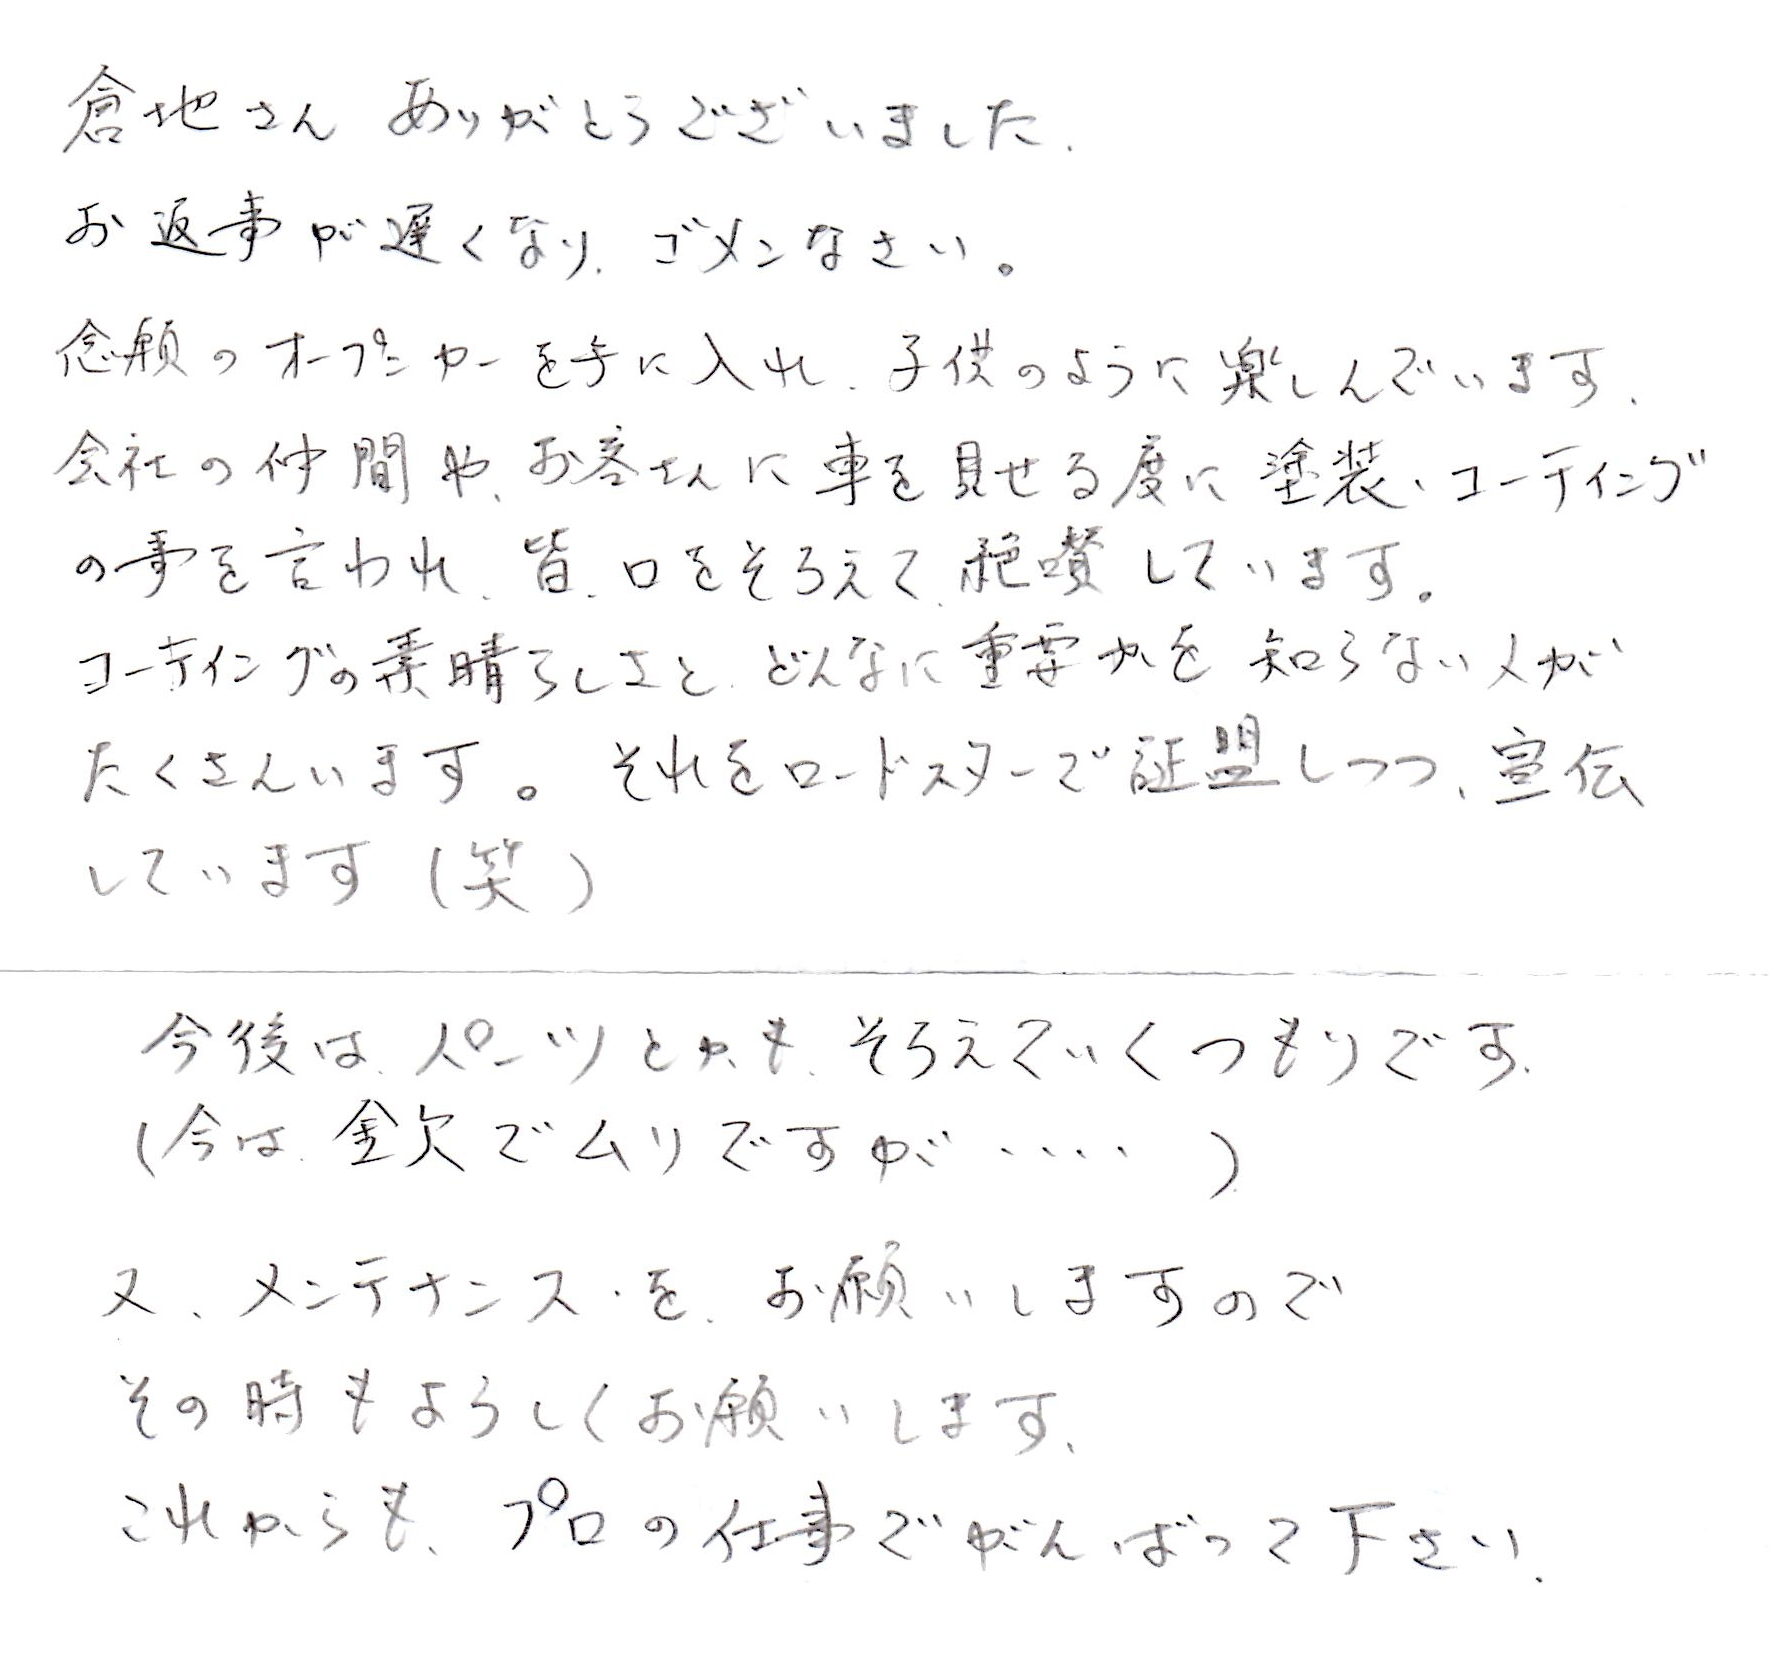 倉地さん ありがとうございました.
お返事が遅くなり、ゴメンなさい。
念願のオープンカーを手に入れ、子供のように楽しんでいます.
会社の仲間や、お客さんに車を見せる度に塗装、コーティング
の事を言われ、皆、口をそろえて、絶賛しています。
コーティングの素晴らしさと、どんなに重要かを知らない人が
たくさんいます。それをロードスターで証盟しつつ、宣伝
しています(笑)
今後は、パーツとかも、そろえていくつもりです.
(今は、金欠でムリですが・・・・)
又、メンテナンス・を、お願いしますので
その時もよろしくお願いします.
これからも、プロの仕事でがんばって下さい.